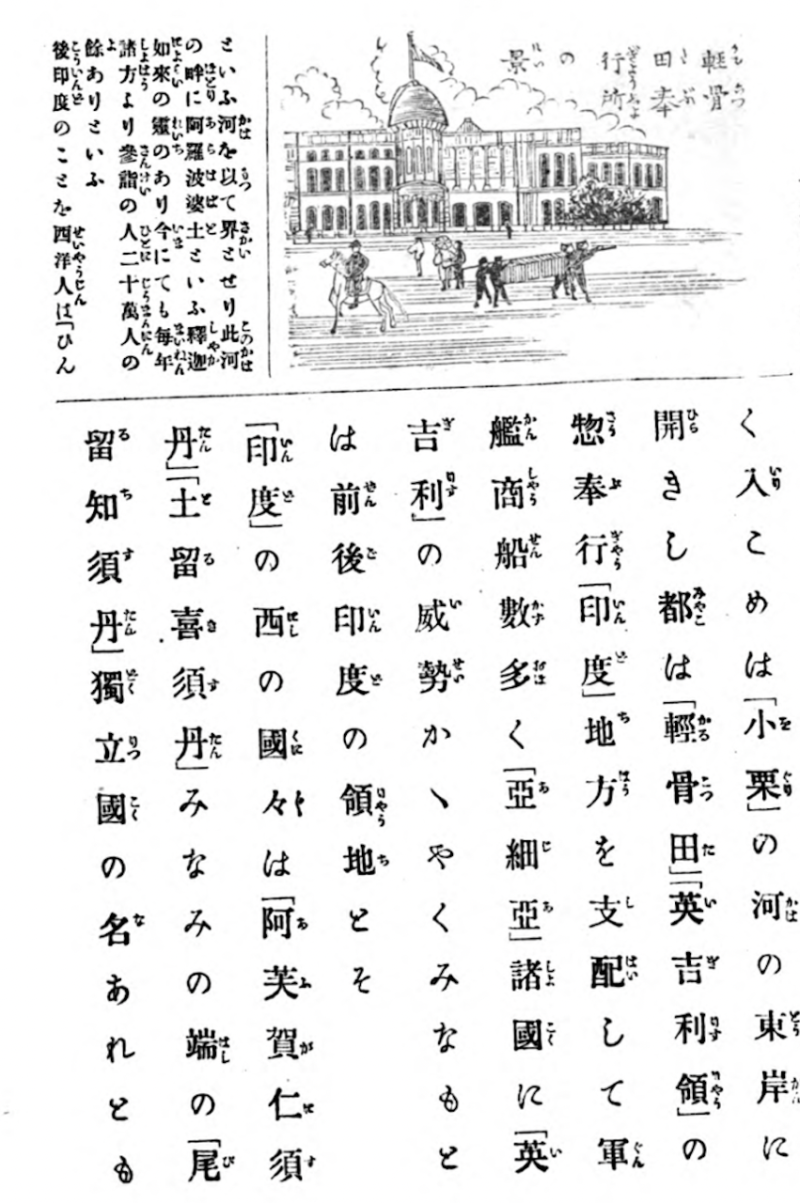 輕骨
田奉
行所
の
景
といふ河を以て界とせり此河
の畔に阿羅波婆土といふ釋迦
如來の靈のあり今にても毎年
諸方より參詣の人二十萬人の
餘ありといふ
後印度のことを西洋人は「ひん
く入こめは「小栗」の河の東岸に
開きし都は「輕骨田」「英吉利領」の
惣奉行「印度」地方を支配して軍
艦商船數多く「亞細亞」諸國に「英
吉利」の威勢かゝやくみなもと
は前後印度の領地とそ
「印度」の西の國々は「阿芙賀仁須
丹」「土留喜須丹」みなみの端の「尾
留知須丹」獨立國の名あれとも